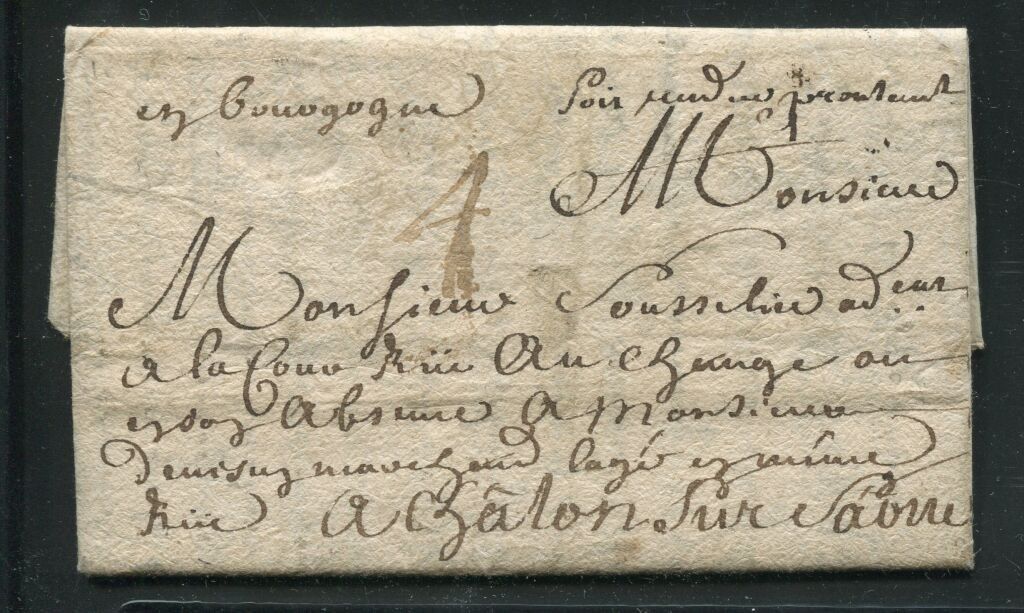 en bourgogne soit rendue promtemt
Monsieur
4
Monsieur Sousselier ad.ent
A la Cour Rüe Au Change ou
en son Absence A Monsieur
marchand logé en même
Rüe A Châlon Sur Saône